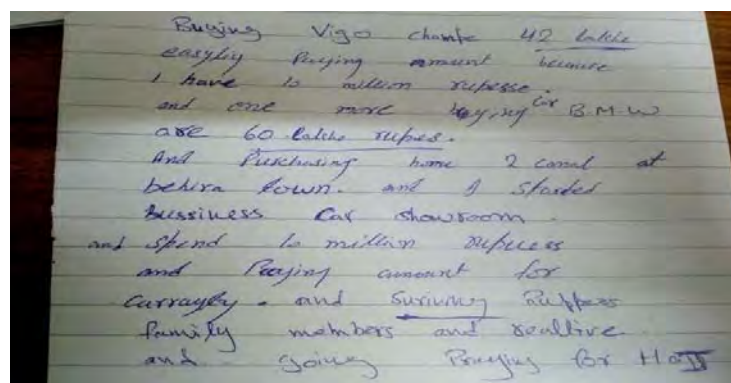 Buying Vigo champe 42 lakhs
easyliy Paying amount because
I have 10 million rupesse.
and one more buying Car B.M.W
are 60 lakhs rupes.
And Purchasing home 2 canal at
behira town. and I started
bussiness Car showroom.
and spend 10 million rupuess
and Paying amount for
and Suriving Ruppees
family members and realtive.
and going Praying for Hajj